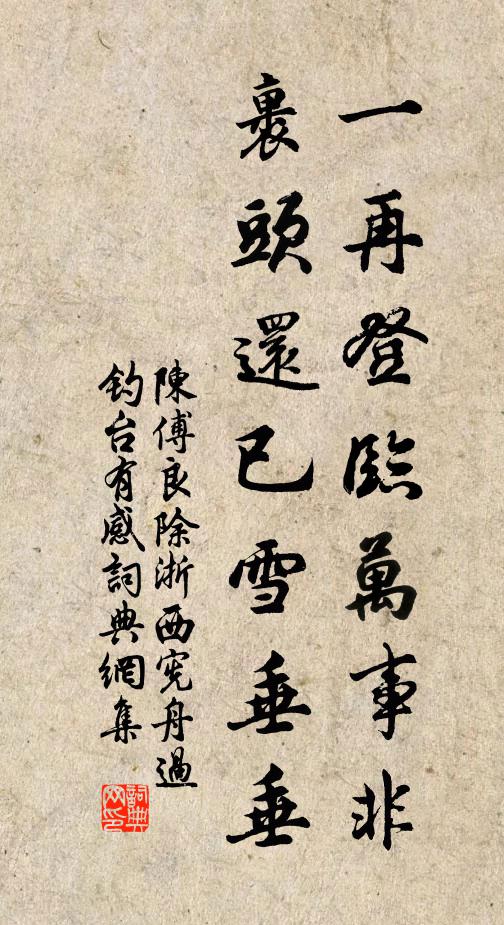 一再登臨萬事非
裹頭還已雪垂垂
陳傅良除浙西憲舟過
釣台有感詞典網集
詞典
网印